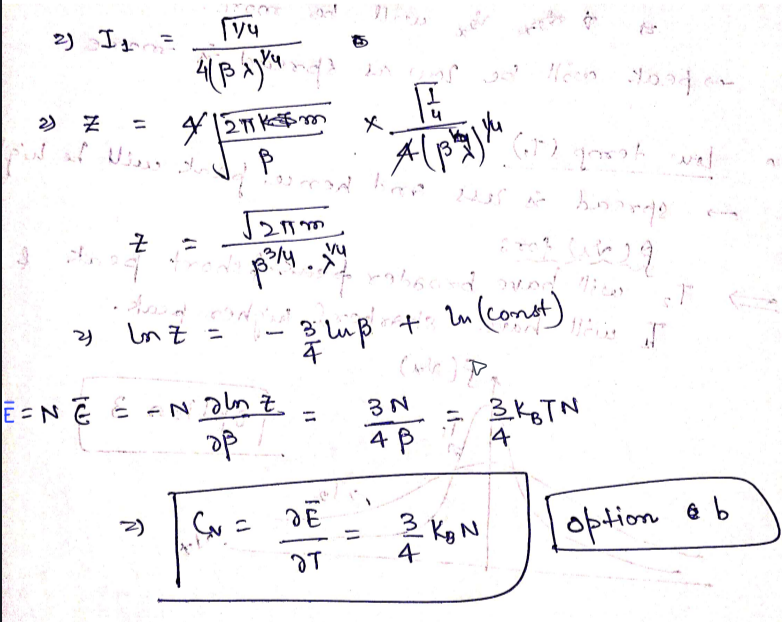 2) I₁ = √(1/4) / 4(βλ)^1/4
2) Z = 4 √(2πm / β) × Γ(1/4) / 4(βλ)^1/4
Z = √(2πm) / β^3/4 . λ^1/4
2) ln Z = - 3/4 ln β + ln (const)
Ē = N ε̄ = - N ∂ln Z / ∂β = 3N / 4β = 3/4 K_B T N
⇒) C_V = ∂Ē / ∂T = 3/4 K_B N
option b